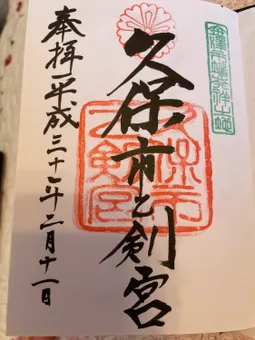 久保市乙剣宮
久保市
乙剣宮
奉拝 平成三十一年二月十一日